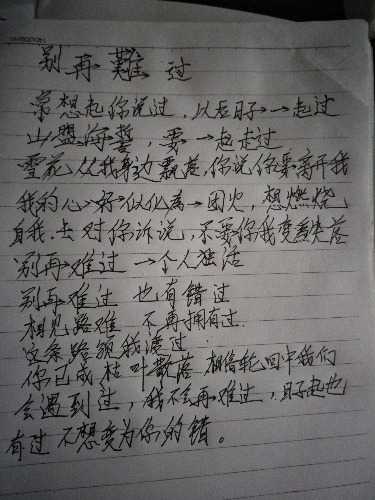 别再難过
常想起你说过，以后日子一起过
山盟海誓，要一起走过
雪花从我身边飘落，你说你要离开我
我的心好似化为一团火，想燃烧
自我.去对你诉说，不要你我变着失落
别再难过 一个人独活
别再难过 也有错过
相见路难 不再拥有过.
这条路领我渡过
你已成枯叶散落 相信轮回中我们
会遇到过，我不会再难过，日子起也
有过 不想变为你的错。